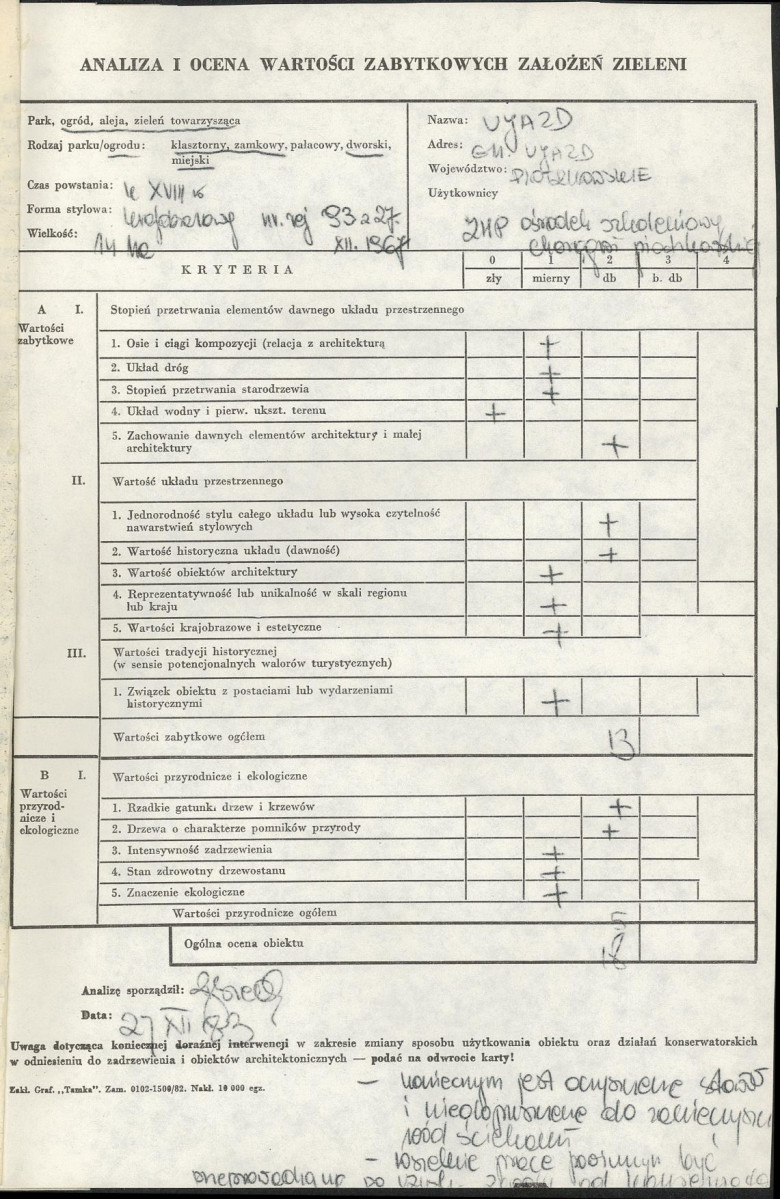 ANALIZA I OCENA WARTOŚCI ZABYTKOWYCH ZAŁOŻEŃ ZIELENI
Park, ogród, aleja, zieleń towarzysząca
Rodzaj parku/ogrodu: klasztorny, zamkowy, pałacowy, dworski, miejski
Czas powstania: k XVIII w
Forma stylowa: krajobrazowy nr. rej 93 z 27. XII. 1967
Wielkość: 14 ha
Nazwa: UJAZD
Adres: GM. UJAZD
Województwo: PIOTRKOWSKIE
Użytkownicy
ZHP ośrodek szkoleniowy
chorągwi piotrkowskiej
KRYTERIA
0 1 2 3 4
zły mierny db b. db
A I. Stopień przetrwania elementów dawnego układu przestrzennego
Wartości
zabytkowe
1. Osie i ciągi kompozycji (relacja z architekturą +
2. Układ dróg +
3. Stopień przetrwania starodrzewia +
4. Układ wodny i pierw. ukszt. terenu +
5. Zachowanie dawnych elementów architektury i małej
architektury +
II. Wartość układu przestrzennego
1. Jednorodność stylu całego układu lub wysoka czytelność
nawarstwień stylowych +
2. Wartość historyczna układu (dawność) +
3. Wartość obiektów architektury +
4. Reprezentatywność lub unikalność w skali regionu
lub kraju +
5. Wartości krajobrazowe i estetyczne +
III. Wartości tradycji historycznej
(w sensie potencjonalnych walorów turystycznych)
1. Związek obiektu z postaciami lub wydarzeniami
historycznymi +
Wartości zabytkowe ogółem 13
B I. Wartości przyrodnicze i ekologiczne
Wartości
przyrod-
nicze i
ekologiczne
1. Rzadkie gatunki drzew i krzewów +
2. Drzewa o charakterze pomników przyrody +
3. Intensywność zadrzewienia +
4. Stan zdrowotny drzewostanu +
5. Znaczenie ekologiczne +
Wartości przyrodnicze ogółem 5
Ogólna ocena obiektu 18
Analizę sporządził:
Data: 27 XII 83
Uwaga dotycząca koniecznej doraźnej interwencji w zakresie zmiany sposobu użytkowania obiektu oraz działań konserwatorskich
w odniesieniu do zadrzewienia i obiektów architektonicznych — podać na odwrocie karty!
Zakł. Graf. „Tamka". Zam. 0102-1500/82. Nakł. 10 000 egz.
— koniecznym jest oczyszczenie stawów
i niedopuszczenie do
wód ściekami
— wszelkie prace powinny być